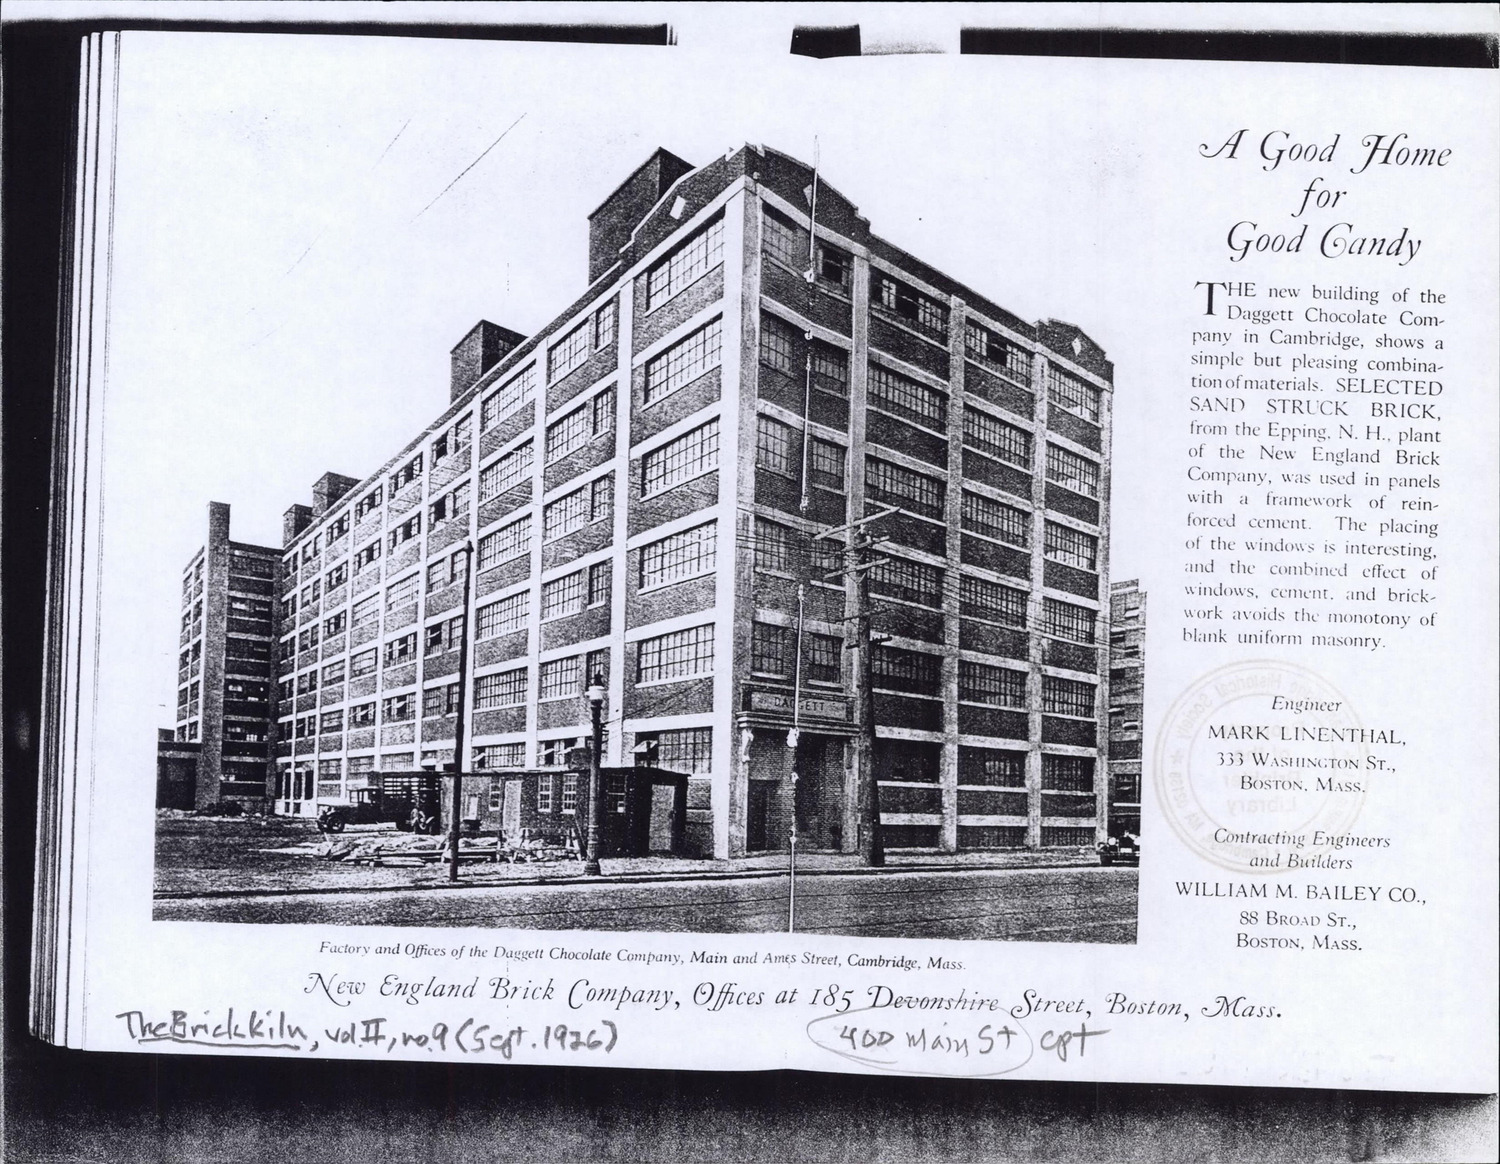 A Good Home
for
Good Candy
THE new building of the
Daggett Chocolate Com-
pany in Cambridge, shows a
simple but pleasing combina-
tion of materials. SELECTED
SAND STRUCK BRICK,
from the Epping, N. H., plant
of the New England Brick
Company, was used in panels
with a framework of rein-
forced cement. The placing
of the windows is interesting,
and the combined effect of
windows, cement, and brick-
work avoids the monotony of
blank uniform masonry.
Engineer
MARK LINENTHAL,
333 WASHINGTON ST.,
BOSTON, MASS.
Contracting Engineers
and Builders
WILLIAM M. BAILEY CO.,
88 BROAD ST.,
BOSTON, MASS.
DAGGETT
Factory and Offices of the Daggett Chocolate Company, Main and Ames Street, Cambridge, Mass.
New England Brick Company, Offices at 185 Devonshire Street, Boston, Mass.
The Brick Kiln, vol. II, no. 9 (Sept. 1926)
400 Main St cpt